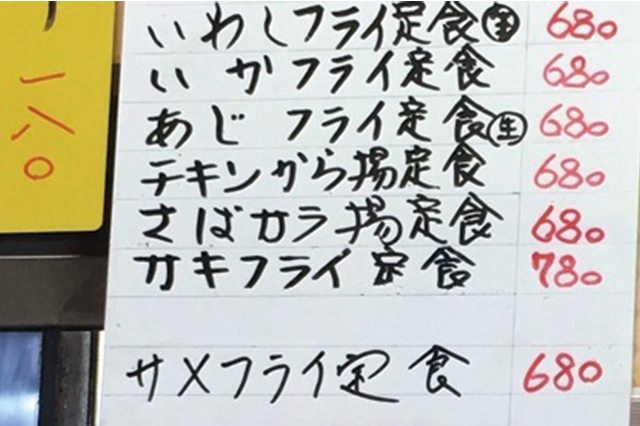 いわしフライ定食生 680
いかフライ定食 680
あじフライ定食生 680
チキンから揚定食 680
さばカラ揚定食 680
カキフライ定食 780
サメフライ定食 680
一八〇